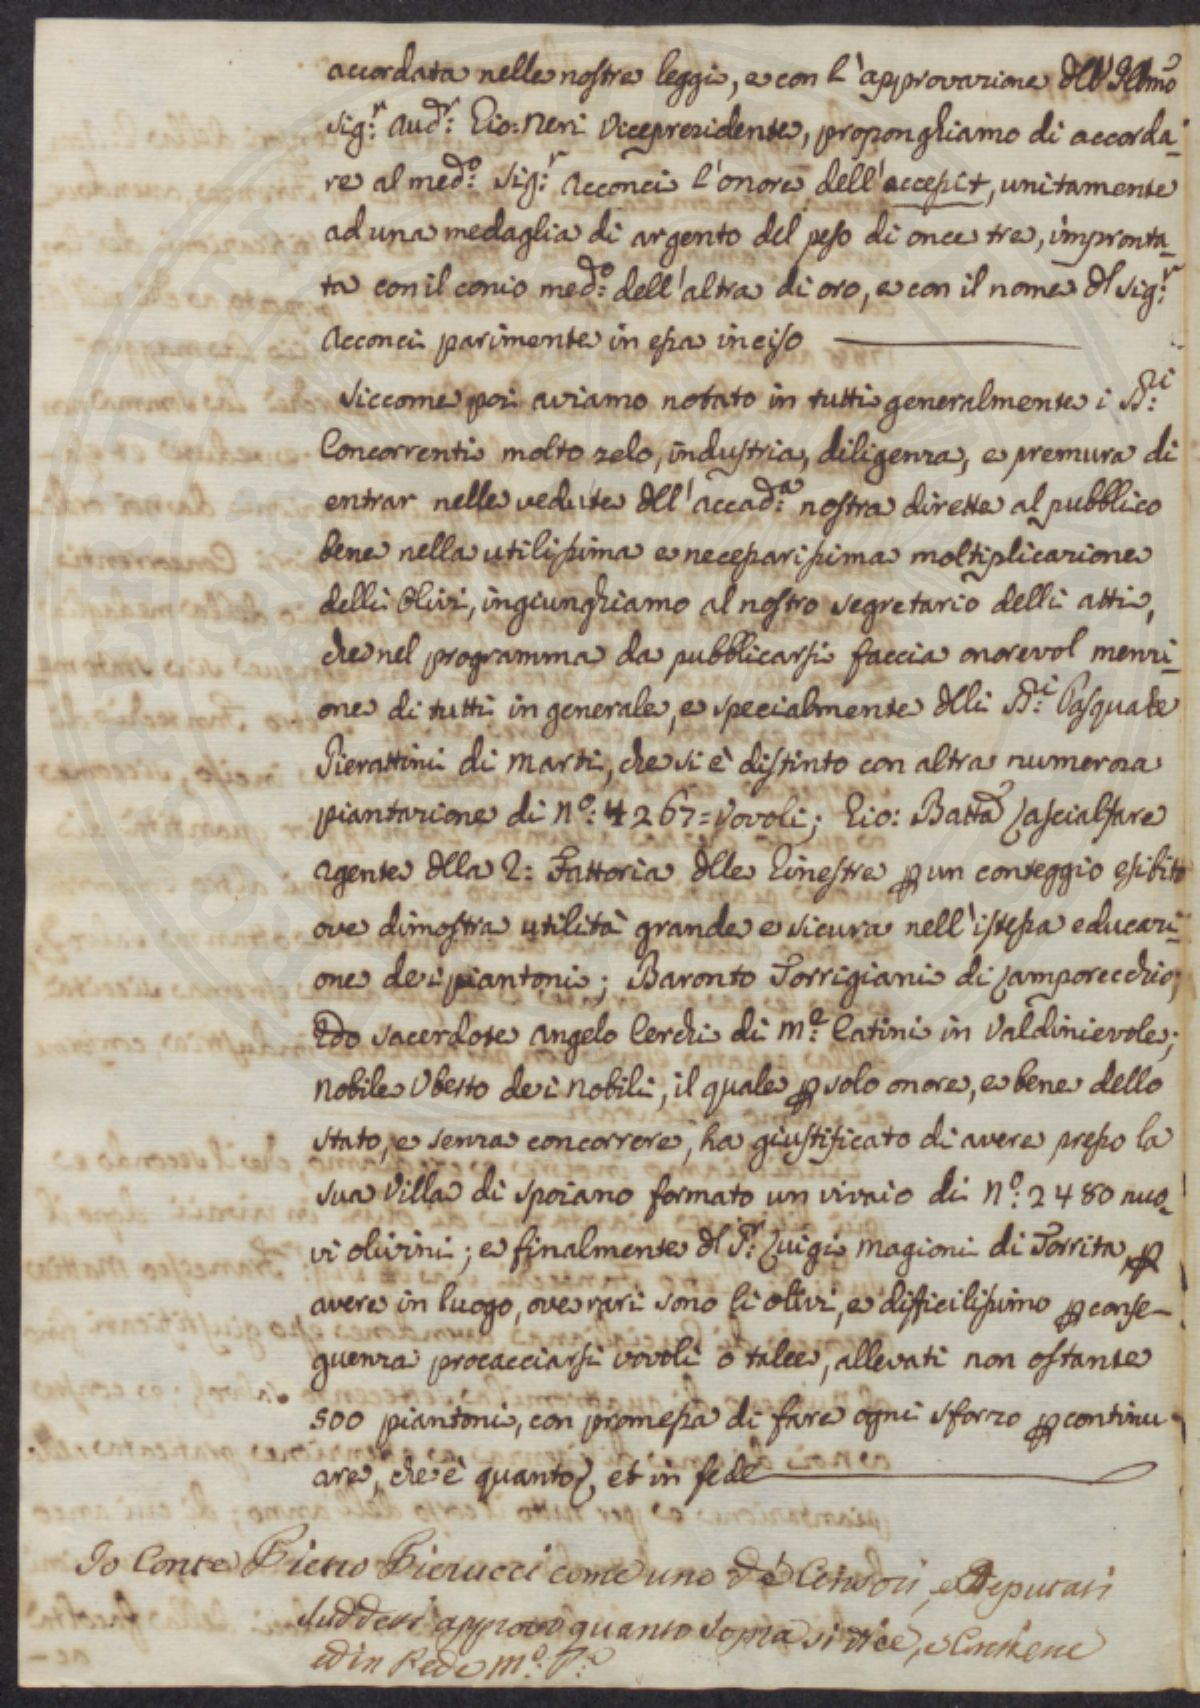 accordata nelle nostre leggi, e con l'approvazione dell'Illmo
Sig.r Aud.r Gio: Neri Vicepresidente, proponghiamo di accorda-
re al med.o Sig.r Acconci l'onore dell'accepit, unitamente
ad una medaglia di argento del peso di once tre, impronta-
ta con il conio med.o dell'altra di oro, e con il nome dl Sig.r
Acconci parimente in essa inciso
Siccome poi aviamo notato in tutti generalmente i SS.ri
Concorrenti molto zelo, industria, diligenza, e premura di
entrar nelle vedute dll'accad.a nostra dirette al pubblico
bene nella utilissima e necessarissima moltiplicazione
delli Olivi, ingiunghiamo al nostro segretario delli atti,
che nel programma da pubblicarsi faccia onorevol menzi-
one di tutti in generale, e specialmente dlli SS.ri Pasquale
Pierattini di Marti, che si è distinto con altra numerosa
piantazione di N.o: 4267 = Vovoli; Gio: Batta Cascialtare
Agente dlla R: Fattoria dlle Ginestre p un conteggio esibito
ove dimostra utilità grande e sicura nell'istessa educazi-
one dei piantoni; Baronto Torrigiani di Camporecchio;
sacerdote Angelo Cerchi di M.e Catini in Valdinievole;
Nobile Uberto dei Nobili, il quale p solo onore, e bene dello
stato, e senza concorrere, ha giustificato di avere presso la
sua Villa di Spoiano formato un vivaio di N.o: 2480 nuo-
vi olivini; e finalmente dl S.r Luigi Magioni di Torrita, p
avere in luogo, ove rari sono li olivi, e difficilissimo p conse-
guenza procacciarsi vovoli o talee, allevati non ostante
500 piantoni, con promessa di fare ogni sforzo p continu
are, che è quanto, et in fede
Io Conte Pietro Pierucci come uno de Censori, e Deputati
suddetti approvo quanto sopra si dice, e Contiene
ed in Fede M.o P.a